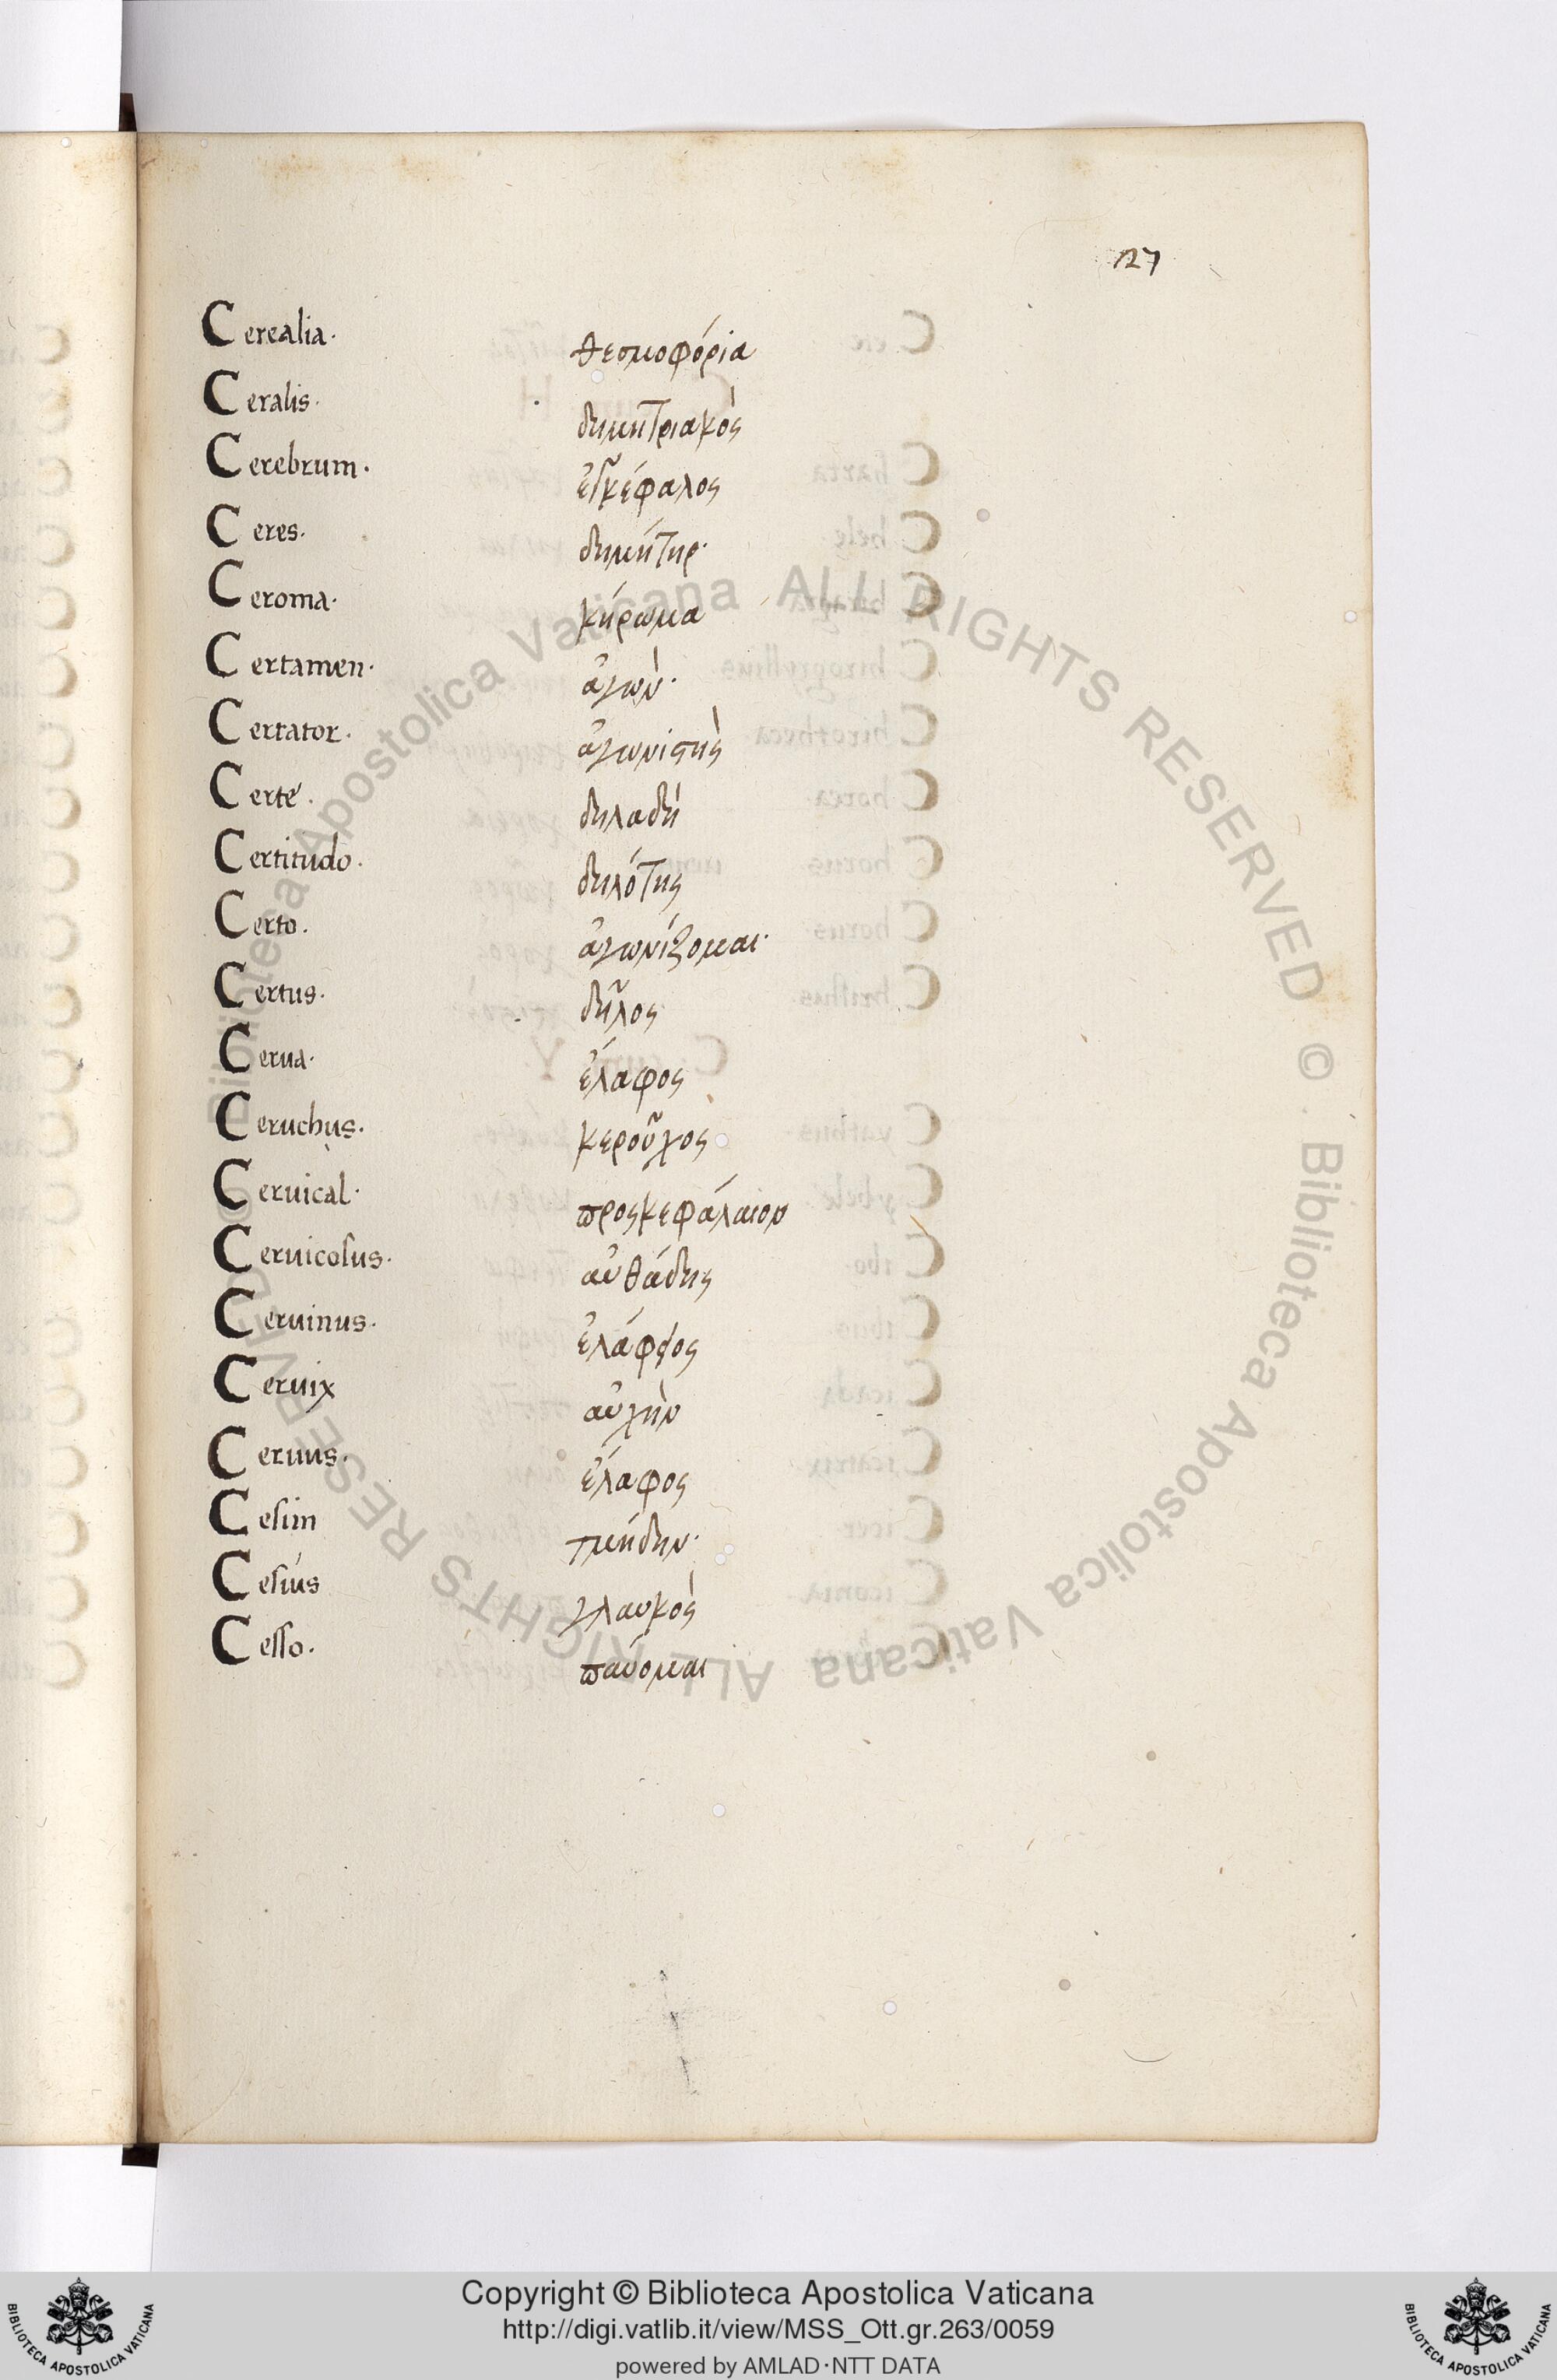 127
Cerealia. θεσμοφόρια
Ceralis. δημητριακὸς
Cerebrum. ἐγκέφαλος
Ceres. δημήτηρ.
Ceroma. κήρωμα
Certamen. ἀγὼν.
Certator. ἀγωνιστὴς
Certé. δηλαδή
Certitudo. δηλότης
Certo. ἀγωνίζομαι.
Certus. δῆλος
Cerua. ἔλαφος
Ceruchus. κεροῦχος
Ceruical. προσκεφάλαιον
Ceruicosus. αὐθάδης
Ceruinus. ἐλάφιος
Ceruix αὐχὴν
Ceruus. ἔλαφος
Cesim τμήδην.
Cesius γλαυκὸς
Cesso. παύομαι
Copyright © Biblioteca Apostolica Vaticana
http://digi.vatlib.it/view/MSS_Ott.gr.263/0059
powered by AMLAD·NTT DATA
BIBLIOTECA APOSTOLICA VATICANA
BIBLIOTECA APOSTOLICA VATICANA
Biblioteca Apostolica Vaticana ALL RIGHTS RESERVED © Biblioteca Apostolica Vaticana ALL RIGHTS RESERVED ©